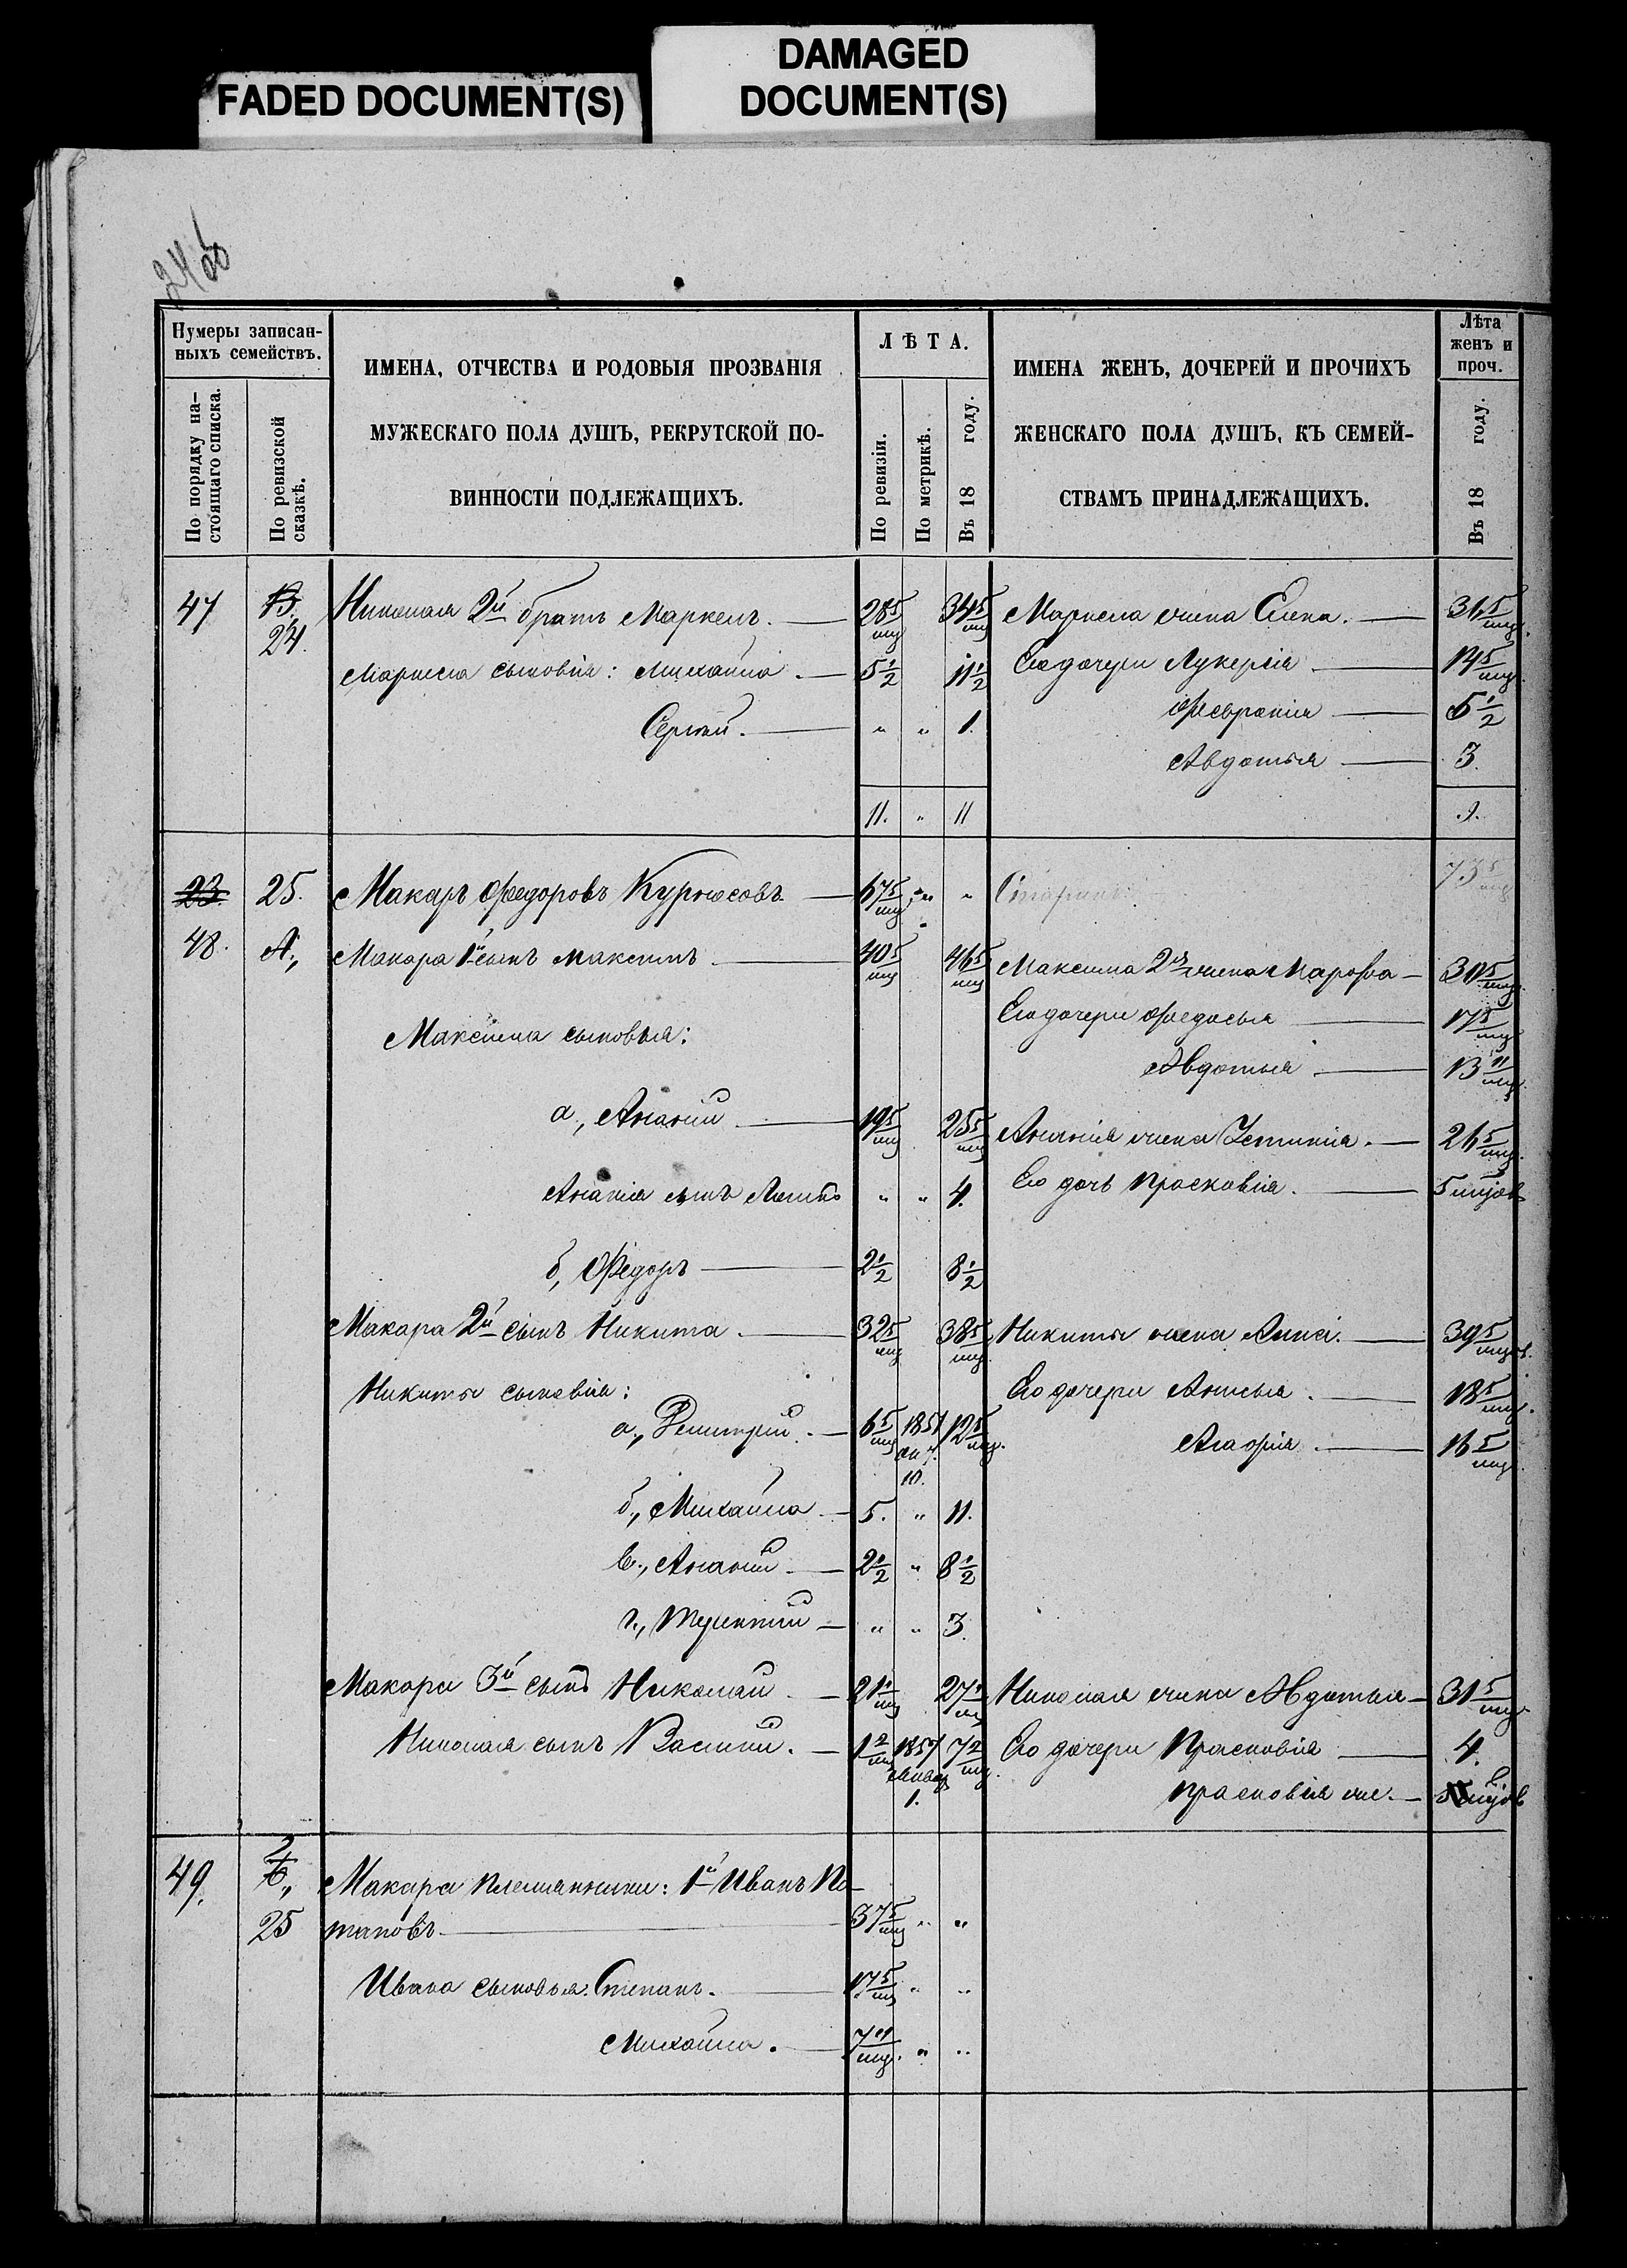 FADED DOCUMENT(S)
DAMAGED
DOCUMENT(S)
24 об
Нумеры записан-
ныхъ семействъ.
По порядку на-
стоящаго списка.
По ревизской
сказкѣ.
ИМЕНА, ОТЧЕСТВА И РОДОВЫЯ ПРОЗВАНІЯ
МУЖЕСКАГО ПОЛА ДУШЪ, РЕКРУТСКОЙ ПО-
ВИННОСТИ ПОДЛЕЖАЩИХЪ.
ЛѢТА.
По ревизіи.
По метрикѣ.
Въ 18 году.
ИМЕНА ЖЕНЪ, ДОЧЕРЕЙ И ПРОЧИХЪ
ЖЕНСКАГО ПОЛА ДУШЪ, КЪ СЕМЕЙ-
СТВАМЪ ПРИНАДЛЕЖАЩИХЪ.
Лѣта
женъ и
проч.
Въ 18 году.
47 В, 24. Николая 2й братъ Маркелъ. 28 5/мц 34 5/мц Маркела жена Елена. 31 5/мц.
Маркела сыновья: Михайла. 5 1/2 11 1/2 Его дочери Лукерья 14 5/мц.
Сергѣй. " " 1. Февронія 5 1/2
Авдотья 3.
11. " 11 9.
23. 25. Макаръ Федоровъ Курносовъ 67 5/мц " " 73 5/мц
48. А., Макара 1й сынъ Максимъ 40 5/мц 46 5/мц Максима 2я жена Марфа 30 5/мц.
Его дочери Федосья 17 5/мц
Максима сыновья:
Авдотья 13 11/мц.
а, Ананій 19 5/мц 25 5/мц Ананія жена Устинія. 26 5/мц.
Ананія сынъ " " 4. Его дочь Прасковья. 5 мцов
б, Федоръ 2 1/2 8 1/2
Макара 2й сынъ Никита. 32 5/мц 38 5/мц. Никиты жена Анна. 39 5/мцов.
Никиты сыновья: Его дочери Анисья. 18 5/мц.
а., Дмитрій. 6 5/мц 1851 окт. 10. 12 5/мц. Агафія. 16 5/мц.
б., Михайла 5. " 11.
в., Ананій 2 1/2 " 8 1/2
г., Терентій " " 3.
Макара 3й сынъ Николай 21 1/мц 27 1/мц Николая жена Авдотья 31 5/мц
Николая сынъ Василій. 1 2/мц 1857 январ 1. 7 2/мц. Его дочери Прасковья 4.
Прасковья же. 5 мцов
49. 2 Б, 25 Макара племянники: 1й Иванъ По-
таповъ 37 5/мц " "
Ивана сыновья: Степанъ. 17 5/мц " "
Михайла. 7 11/мц. " "